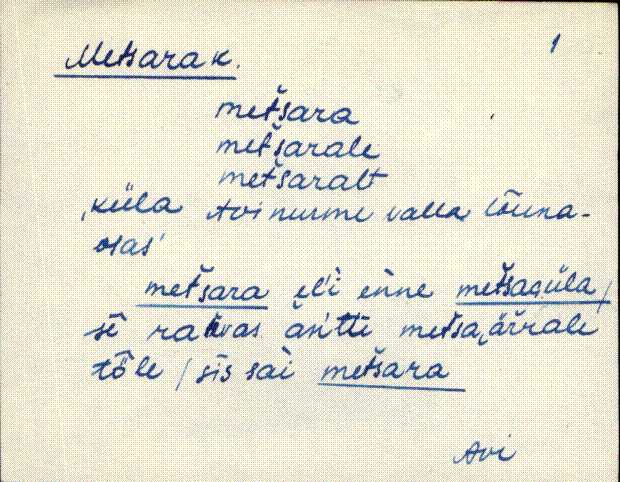 Metsarak. 1
metšara
metšarale
metšaralt
'küla Avinurme valla lõuna-
osas'
metšara eĺi enne metšagüla /
sē rahvas äsitti metsa, äŕrale
tȭle / sīs sai metšara
Avi